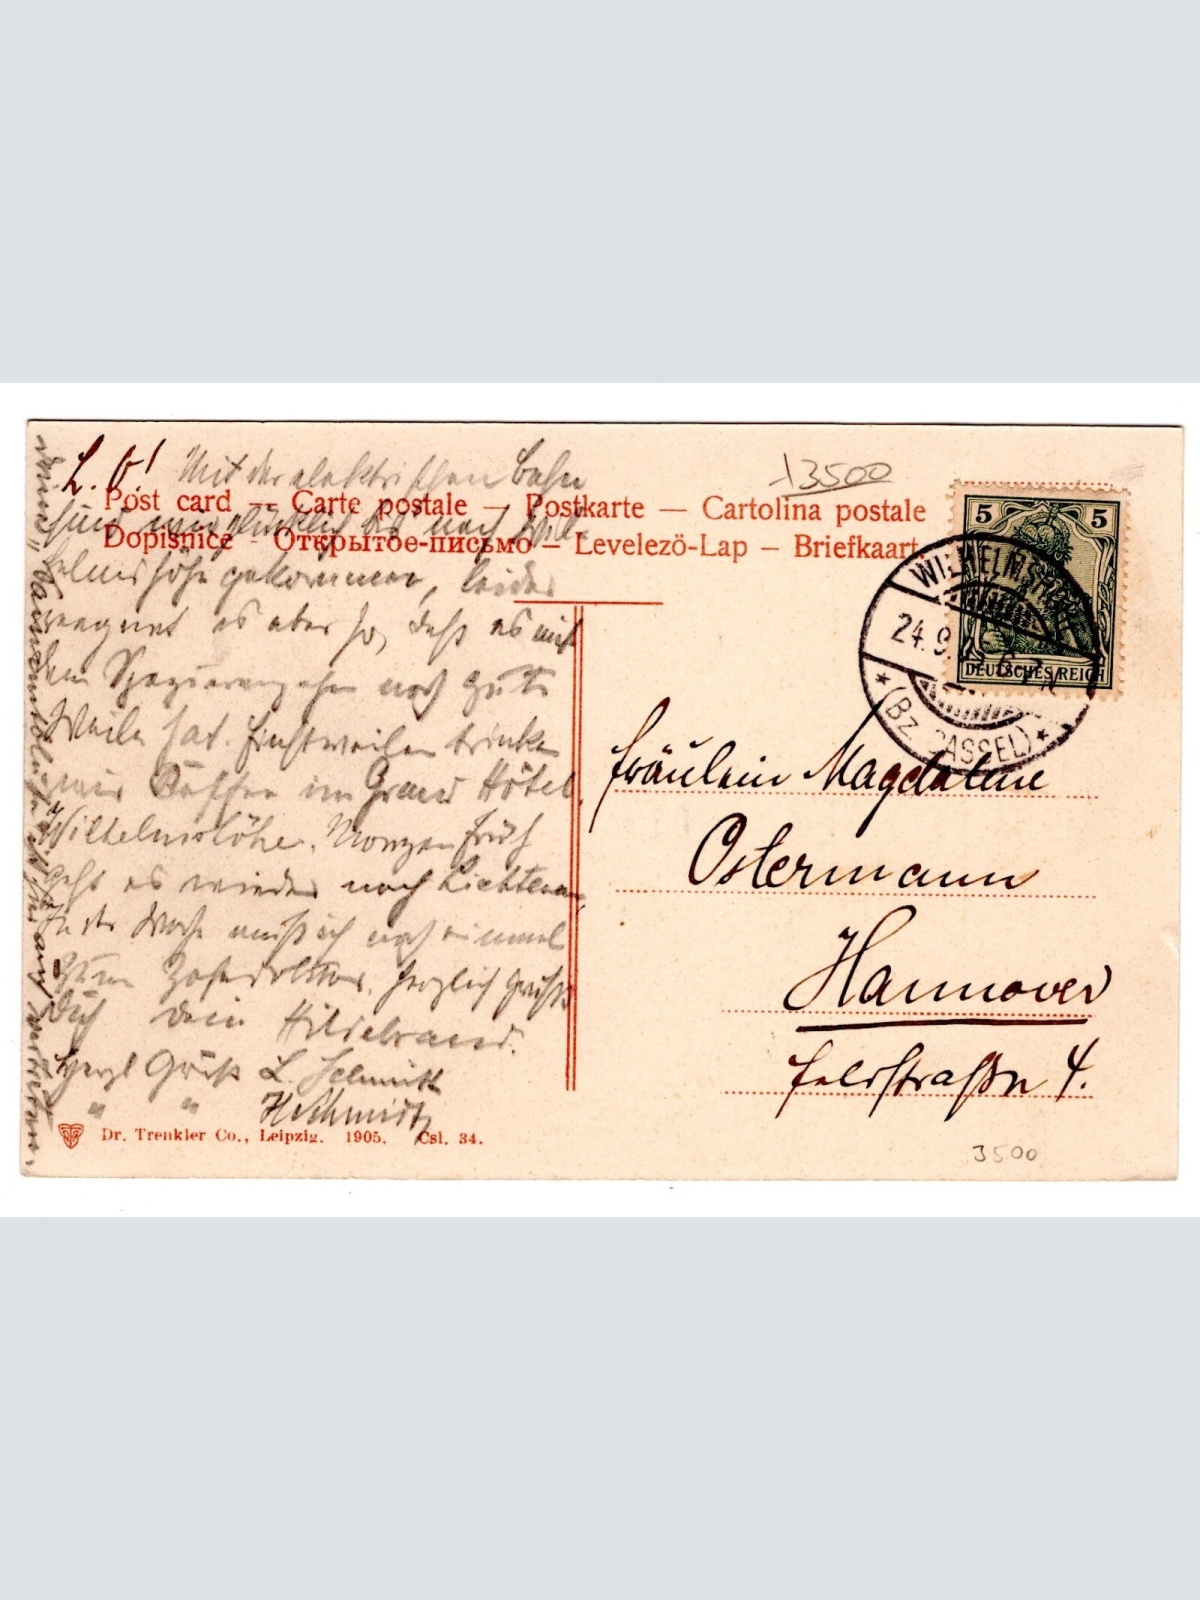 L. O! Mit der elektrischen Bahn
Post card — Carte postale — Postkarte — Cartolina postale
sind wir glücklich bis nach Wil-
Dopisnice - Открытое-письмо – Levelezö-Lap – Briefkaart
helmshöhe gekommen, leider
regnet es aber so, daß es mit
dem Spazierengehen noch gute
Weile hat. Einstweilen trinken
wir Kaffee im Grand Hôtel
Wilhelmshöhe. Morgen früh
geht es wieder nach Lichtenau,
In der Woche muß ich noch einmal
zum Zahndoktor. Herzlich grüßt
Dich dein Hildebrand.
Herzl Gruß L. Schmidt
" " H Schmidt
Dr. Trenkler Co., Leipzig. 1905. Csl. 34.
13500
5 5
DEUTSCHES REICH
WILHELMSHÖHE
24.9. 6-7N
* (BZ. CASSEL) *
Fräulein Magdalene
Ostermann
Hannover
Feldstraße 4.
3500